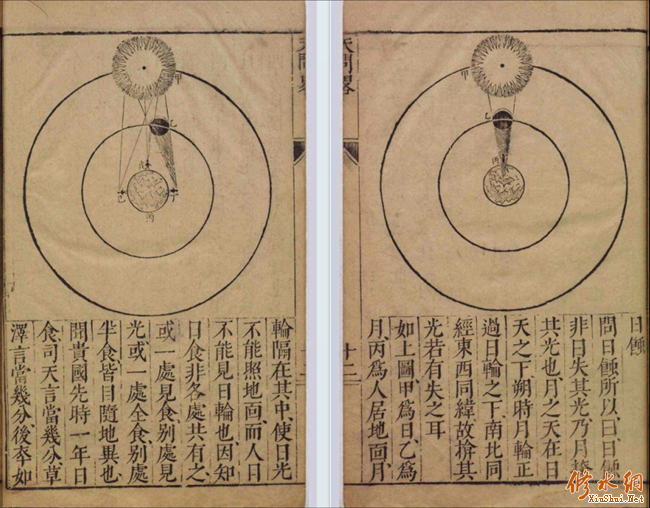 甲
乙
丙
日蝕
問日蝕所以曰日蝕
非日失其光乃月揜
其光也月之天在日
天之下朔時月輪正
過日輪之下南北同
經東西同緯故揜其
光若有失之耳
如上圖甲為日乙為
月丙為人居地面月
天問畧
廿二
乙
戊
己
丁
丙
輪隔在其中、使日光
不能照地面而人目
不能見日輪也、因知
日食非各處共有之、
或一處見食、別處見
光、或一處全食、別處
半食、皆目隨地異也
聞貴國先時一年日
食、司天言當幾分、草
澤言當幾分、後率如
修水網
XiuShui.Net